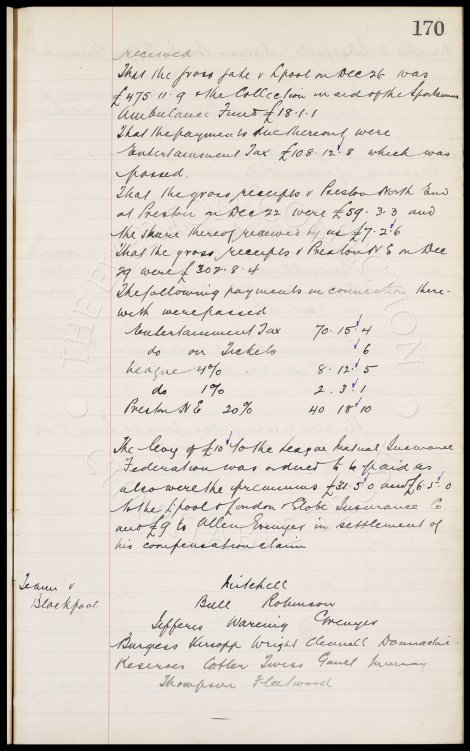 170
received
That the gross gate v Lpool on Dec 26 was
£475.11.9 & the Collection in aid of the Sportsmans
Ambulance Fund £18.1.1
That the payments due thereout were
Entertainment Tax £108.12.8 which was
passed.
That the gross receipts v Preston North End
at Preston on Dec 22 were £59.3.3 and
the share thereof received by us £7.2.6
That the gross receipts v Preston N E on Dec
29 were £302.8.4
The following payments in connection there-
with were passed
Entertainment Tax 70.15.4
do on Tickets 6
League 4% 8.12.5
do 1% 2.3.1
Preston N E 20% 40 18 10
The levy of £10 to the League Mutual Insurance
Federation was ordered to be paid as
also were the premiums £31.5.0 and £6.5.0
to the Lpool & London & Globe Insurance Co
and £9 to Allen Grenyer in settlement of
his compensation claim
Team v
Blackpool
Mitchell
Bull Robinson
Jefferis Wareing Grenyer
Burgess Kirsopp Wright Clennell Donnachie
Reserves Cotter Twiss Murray
Thompson Fleetwood